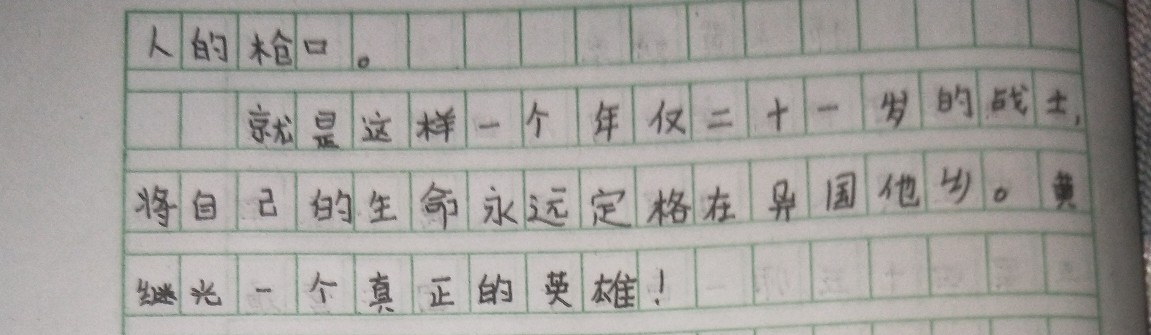 人的枪口。
就是这样一个年仅二十一岁的战士,
将自己的生命永远定格在异国他乡。黄
继光一个真正的英雄!